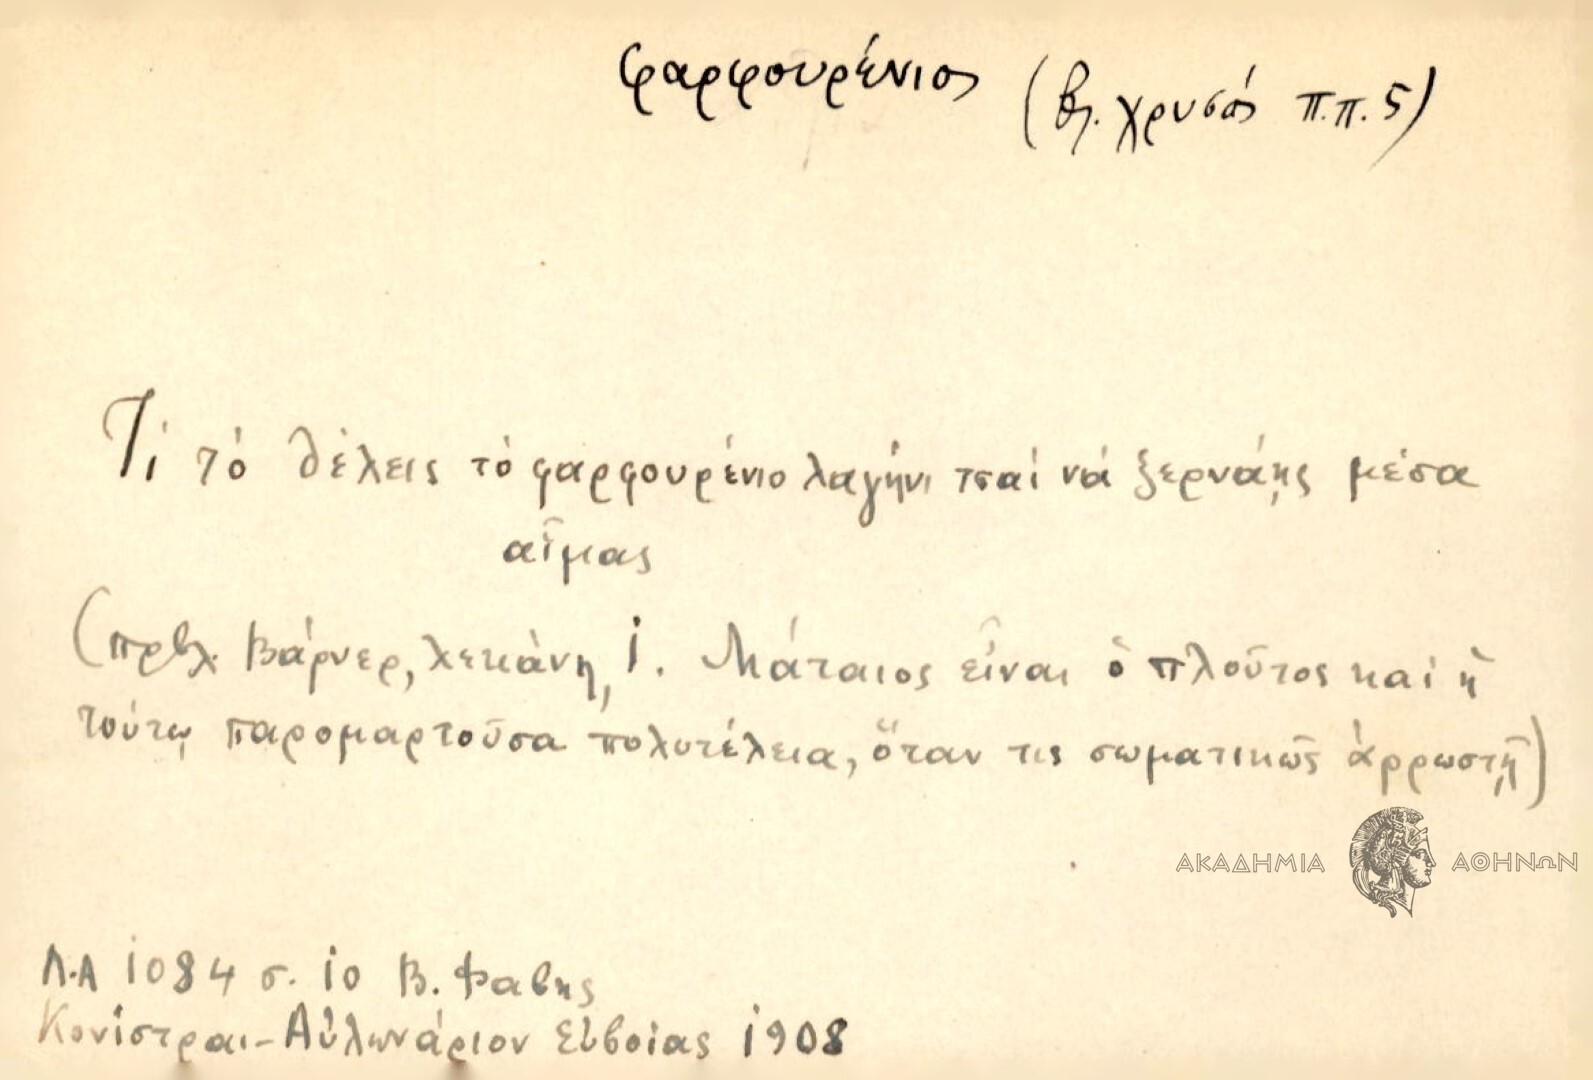 φαρφουρένιος (βλ. χρυσός π.π. 5)
Τί τὸ θέλεις τὸ φαρφουρένιο λαγήνι τσαὶ νά ξερνάῃς μέσα
αἷμας
(πρβλ. Βάρνερ, λεκάνη, 1. Μάταιος εἶναι ὁ πλοῦτος καὶ ἡ
τούτῳ παρομαρτοῦσα πολυτέλεια, ὅταν τις σωματικῶς ἀρρωστῇ)
ΑΚΑΔΗΜΙΑ ΑΘΗΝΩΝ
Λ.Α 1084 σ. 10 Β. Φάβης
Κονίστραι-Αὐλωνάριον Εὐβοίας 1908